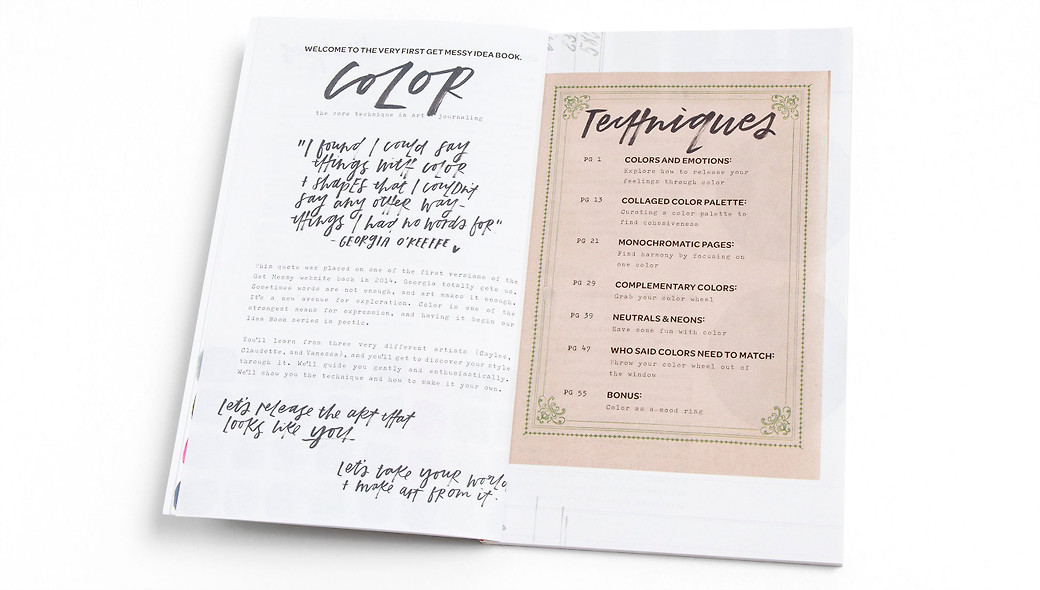 WELCOME TO THE VERY FIRST GET MESSY IDEA BOOK.
COLOR
the core technique in art journaling
"I found I could say
things with color
+ shapes that I couldn't
say any other way—
things I had no words for"
- GEORGIA O'KEEFFE
This quote was placed on one of the first versions of the
Get Messy website back in 2014. Georgia totally gets us.
Sometimes words are not enough, and art makes it enough.
It's a new avenue for exploration. Color is one of the
strongest means for expression, and having it begin our
Idea Book series is poetic.
You'll learn from three very different artists (Caylee,
Claudette, and Vanessa), and you'll get to discover your style
through it. We'll guide you gently and enthusiastically.
We'll show you the technique and how to make it your own.
Let's release the art that
looks like you
Let's take your world
+ make art from it.
Techniques
PG 1 COLORS AND EMOTIONS:
Explore how to release your
feelings through color
PG 13 COLLAGED COLOR PALETTE:
Curating a color palette to
find cohesiveness
PG 21 MONOCHROMATIC PAGES:
Find harmony by focusing on
one color
PG 29 COMPLEMENTARY COLORS:
Grab your color wheel
PG 39 NEUTRALS & NEONS:
Have some fun with color
PG 47 WHO SAID COLORS NEED TO MATCH:
Throw your color wheel out of
the window
PG 55 BONUS:
Color as a mood ring